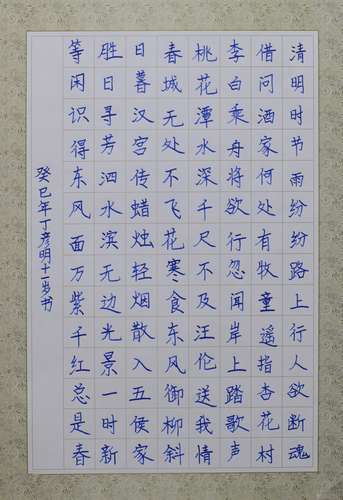 清明时节雨纷纷路上行人欲断魂
借问酒家何处有牧童遥指杏花村
李白乘舟将欲行忽闻岸上踏歌声
桃花潭水深千尺不及汪伦送我情
春城无处不飞花寒食东风御柳斜
日暮汉宫传蜡烛轻烟散入五侯家
胜日寻芳泗水滨无边光景一时新
等闲识得东风面万紫千红总是春
癸巳年丁彦明十一岁书